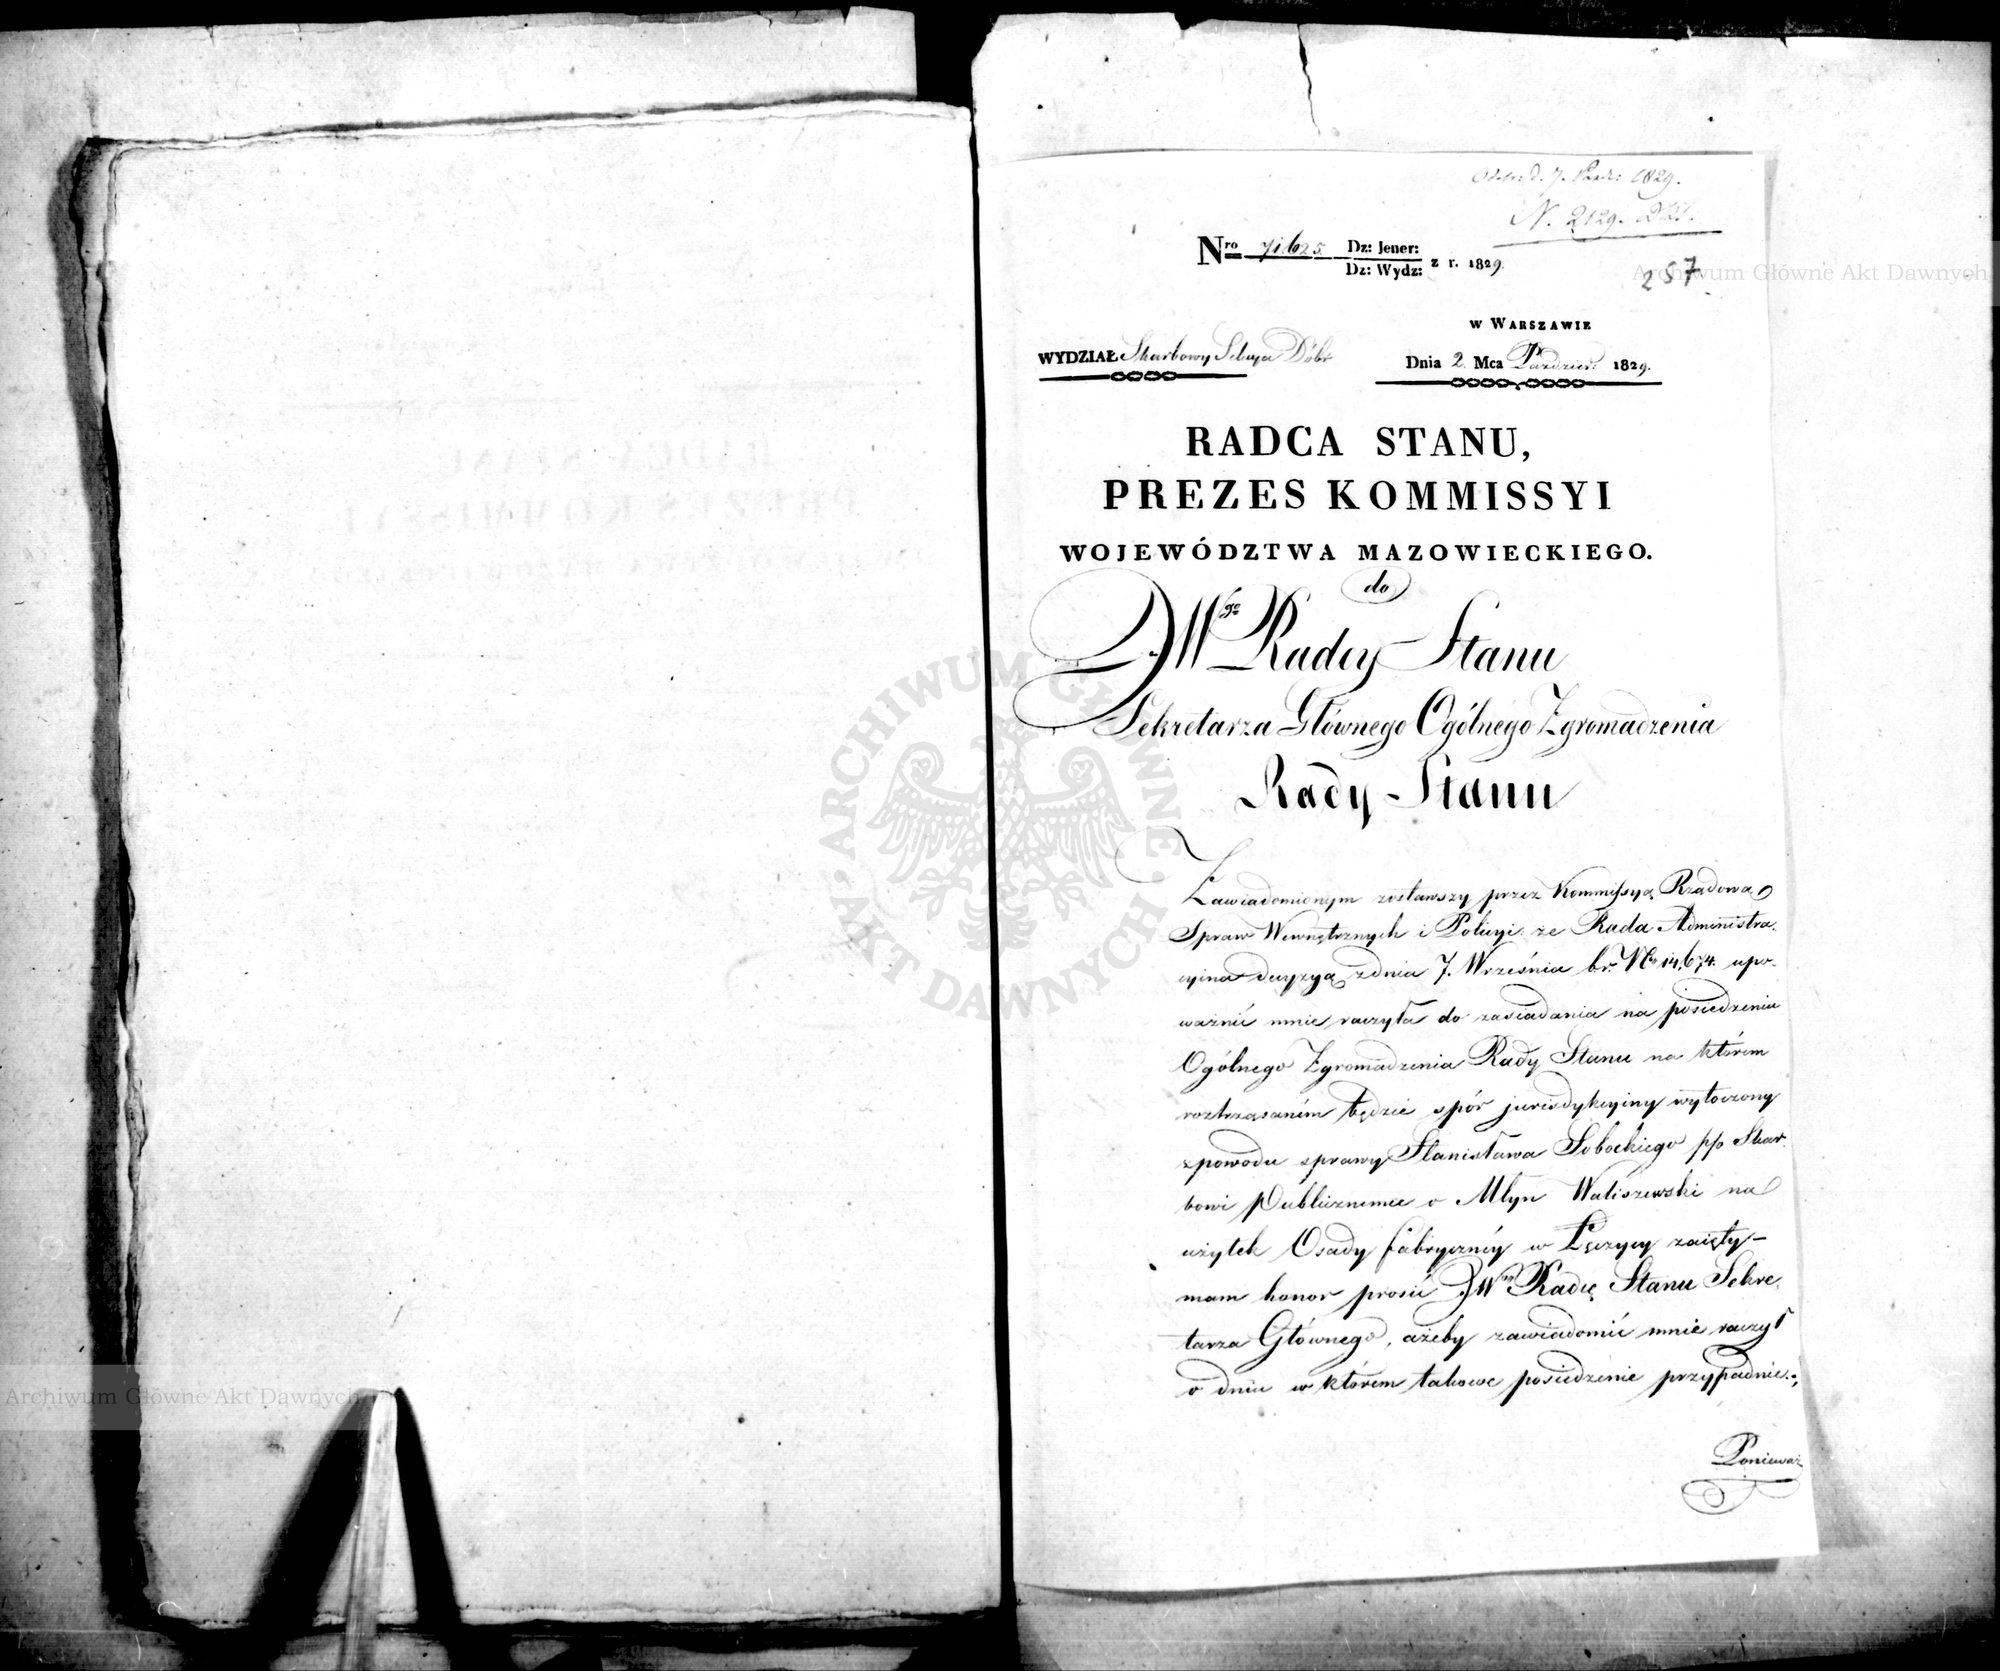 d. 7. Paź: 1829.
N. 2129.
257
Nro 71625 Dz: Jener: Dz: Wydz: z r. 1829.
w Warszawie
WYDZIAŁ Skarbowy Sekcya Dóbr
Dnia 2 Mca Paździer: 1829.
RADCA STANU,
PREZES KOMMISSYI
WOJEWÓDZTWA MAZOWIECKIEGO.
do
JWgo Radcy Stanu
Sekretarza Głównego Ogólnego Zgromadzenia
Rady Stanu
Zawiadomionym zostawszy przez Kommissyą Rządową
Spraw Wewnętrznych i Policyi że Rada Administra
cyina decyzyą z dnia 7. Września br. No 14,674. upo-
ważnić mnie raczyła do zasiadania na posiedzeniu
Ogólnego Zgromadzenia Rady Stanu na którem
roztrząsanem będzie spór jurisdykcyiny wytoczony
z powodu sprawy Stanisława Sobockiego p/o Skar-
bowi Publicznemu o Młyn Waliszewski na
użytek Osady fabrycznéy w Łęczycy zaięty –
mam honor prosić JWgo Radcę Stanu Sekre
tarza Głównego, ażeby zawiadomić mnie raczył
o dniu w którem takowe posiedzenie przypadnie.;
Ponieważ
Archiwum Główne Akt Dawnych
Archiwum Główne Akt Dawnych
ARCHIWUM GŁÓWNE AKT DAWNYCH